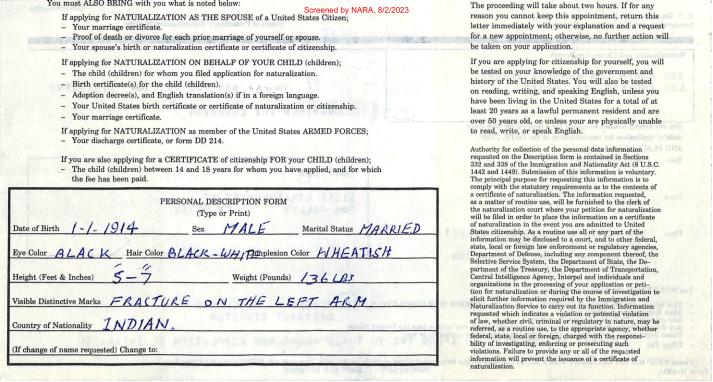 You must ALSO BRING with you what is noted below:
Screened by NARA, 8/2/2023
If applying for NATURALIZATION AS THE SPOUSE of a United States Citizen;
– Your marriage certificate.
– Proof of death or divorce for each prior marriage of yourself or spouse.
– Your spouse's birth or naturalization certificate or certificate of citizenship.
If applying for NATURALIZATION ON BEHALF OF YOUR CHILD (children);
– The child (children) for whom you filed application for naturalization.
– Birth certificate(s) for the child (children).
– Adoption decree(s), and English translation(s) if in a foreign language.
– Your United States birth certificate or certificate of naturalization or citizenship.
– Your marriage certificate.
If applying for NATURALIZATION as member of the United States ARMED FORCES;
– Your discharge certificate, or form DD 214.
If you are also applying for a CERTIFICATE of citizenship FOR your CHILD (children);
– The child (children) between 14 and 18 years for whom you have applied, and for which
the fee has been paid.
PERSONAL DESCRIPTION FORM
(Type or Print)
Date of Birth 1-1-1914 Sex MALE Marital Status MARRIED
Eye Color ALACK Hair Color BLACK-WHITE Complexion Color WHEATISH
Height (Feet & Inches) 5-7" Weight (Pounds) 136 LBS
Visible Distinctive Marks FRACTURE ON THE LEFT ARM
Country of Nationality INDIAN.
(If change of name requested) Change to:
The proceeding will take about two hours. If for any
reason you cannot keep this appointment, return this
letter immediately with your explanation and a request
for a new appointment; otherwise, no further action will
be taken on your application.
If you are applying for citizenship for yourself, you will
be tested on your knowledge of the government and
history of the United States. You will also be tested
on reading, writing, and speaking English, unless you
have been living in the United States for a total of at
least 20 years as a lawful permanent resident and are
over 50 years old, or unless you are physically unable
to read, write, or speak English.
Authority for collection of the personal data information
requested on the Description form is contained in Sections
332 and 338 of the Immigration and Nationality Act (8 U.S.C.
1442 and 1449). Submission of this information is voluntary.
The principal purpose for requesting this information is to
comply with the statutory requirements as to the contents of
a certificate of naturalization. The information requested,
as a matter of routine use, will be furnished to the clerk of
the naturalization court where your petition for naturalization
will be filed in order to place the information on a certificate
of naturalization in the event you are admitted to United
States citizenship. As a routine use all or any part of the
information may be disclosed to a court, and to other federal,
state, local or foreign law enforcement or regulatory agencies,
Department of Defense, including any component thereof, the
Selective Service System, the Department of State, the De-
partment of the Treasury, the Department of Transportation,
Central Intelligence Agency, Interpol and individuals and
organizations in the processing of your application or peti-
tion for naturalization or during the course of investigation to
elicit further information required by the Immigration and
Naturalization Service to carry out its function. Information
requested which indicates a violation or potential violation
of law, whether civil, criminal or regulatory in nature, may be
referred, as a routine use, to the appropriate agency, whether
federal, state, local or foreign, charged with the responsi-
bility of investigating, enforcing or prosecuting such
violations. Failure to provide any or all of the requested
information will prevent the issuance of a certificate of
naturalization.